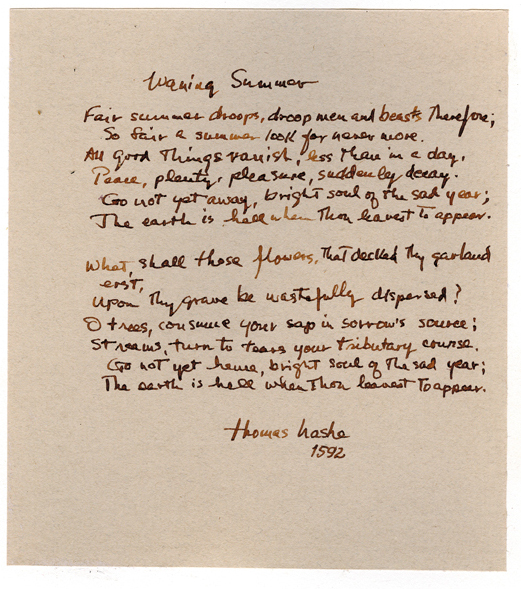 Waning Summer
Fair summer droops, droop men and beasts therefore;
So fair a summer look for never more.
All good things vanish, less than in a day,
Peace, plenty, pleasure, suddenly decay.
Go not yet away, bright soul of the sad year;
The earth is hell when thou leavest to appear.
What, shall those flowers, that decked thy garland
erst,
Upon thy grave be wastefully dispersed?
O trees, consume your sap in sorrow's source;
Streams, turn to tears your tributary course.
Go not yet hence, bright soul of the sad year;
The earth is hell when thou leavest to appear.
Thomas Nashe
1592